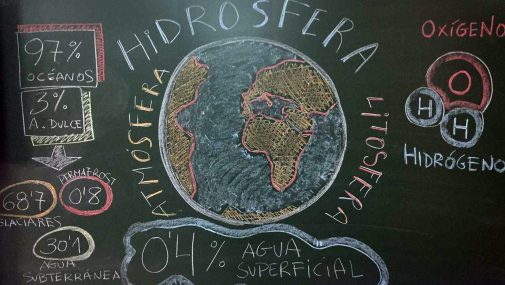 HIDROSFERA
ATMÓSFERA
LITOSFERA
97%
OCÉANOS
3%
A. DULCE
68'7
GLACIARES
PERMAFROST
0'8
30'1
AGUA
SUBTERRÁNEA
0'4% AGUA
SUPERFICIAL
OXÍGENO
O
H H
HIDRÓGENO